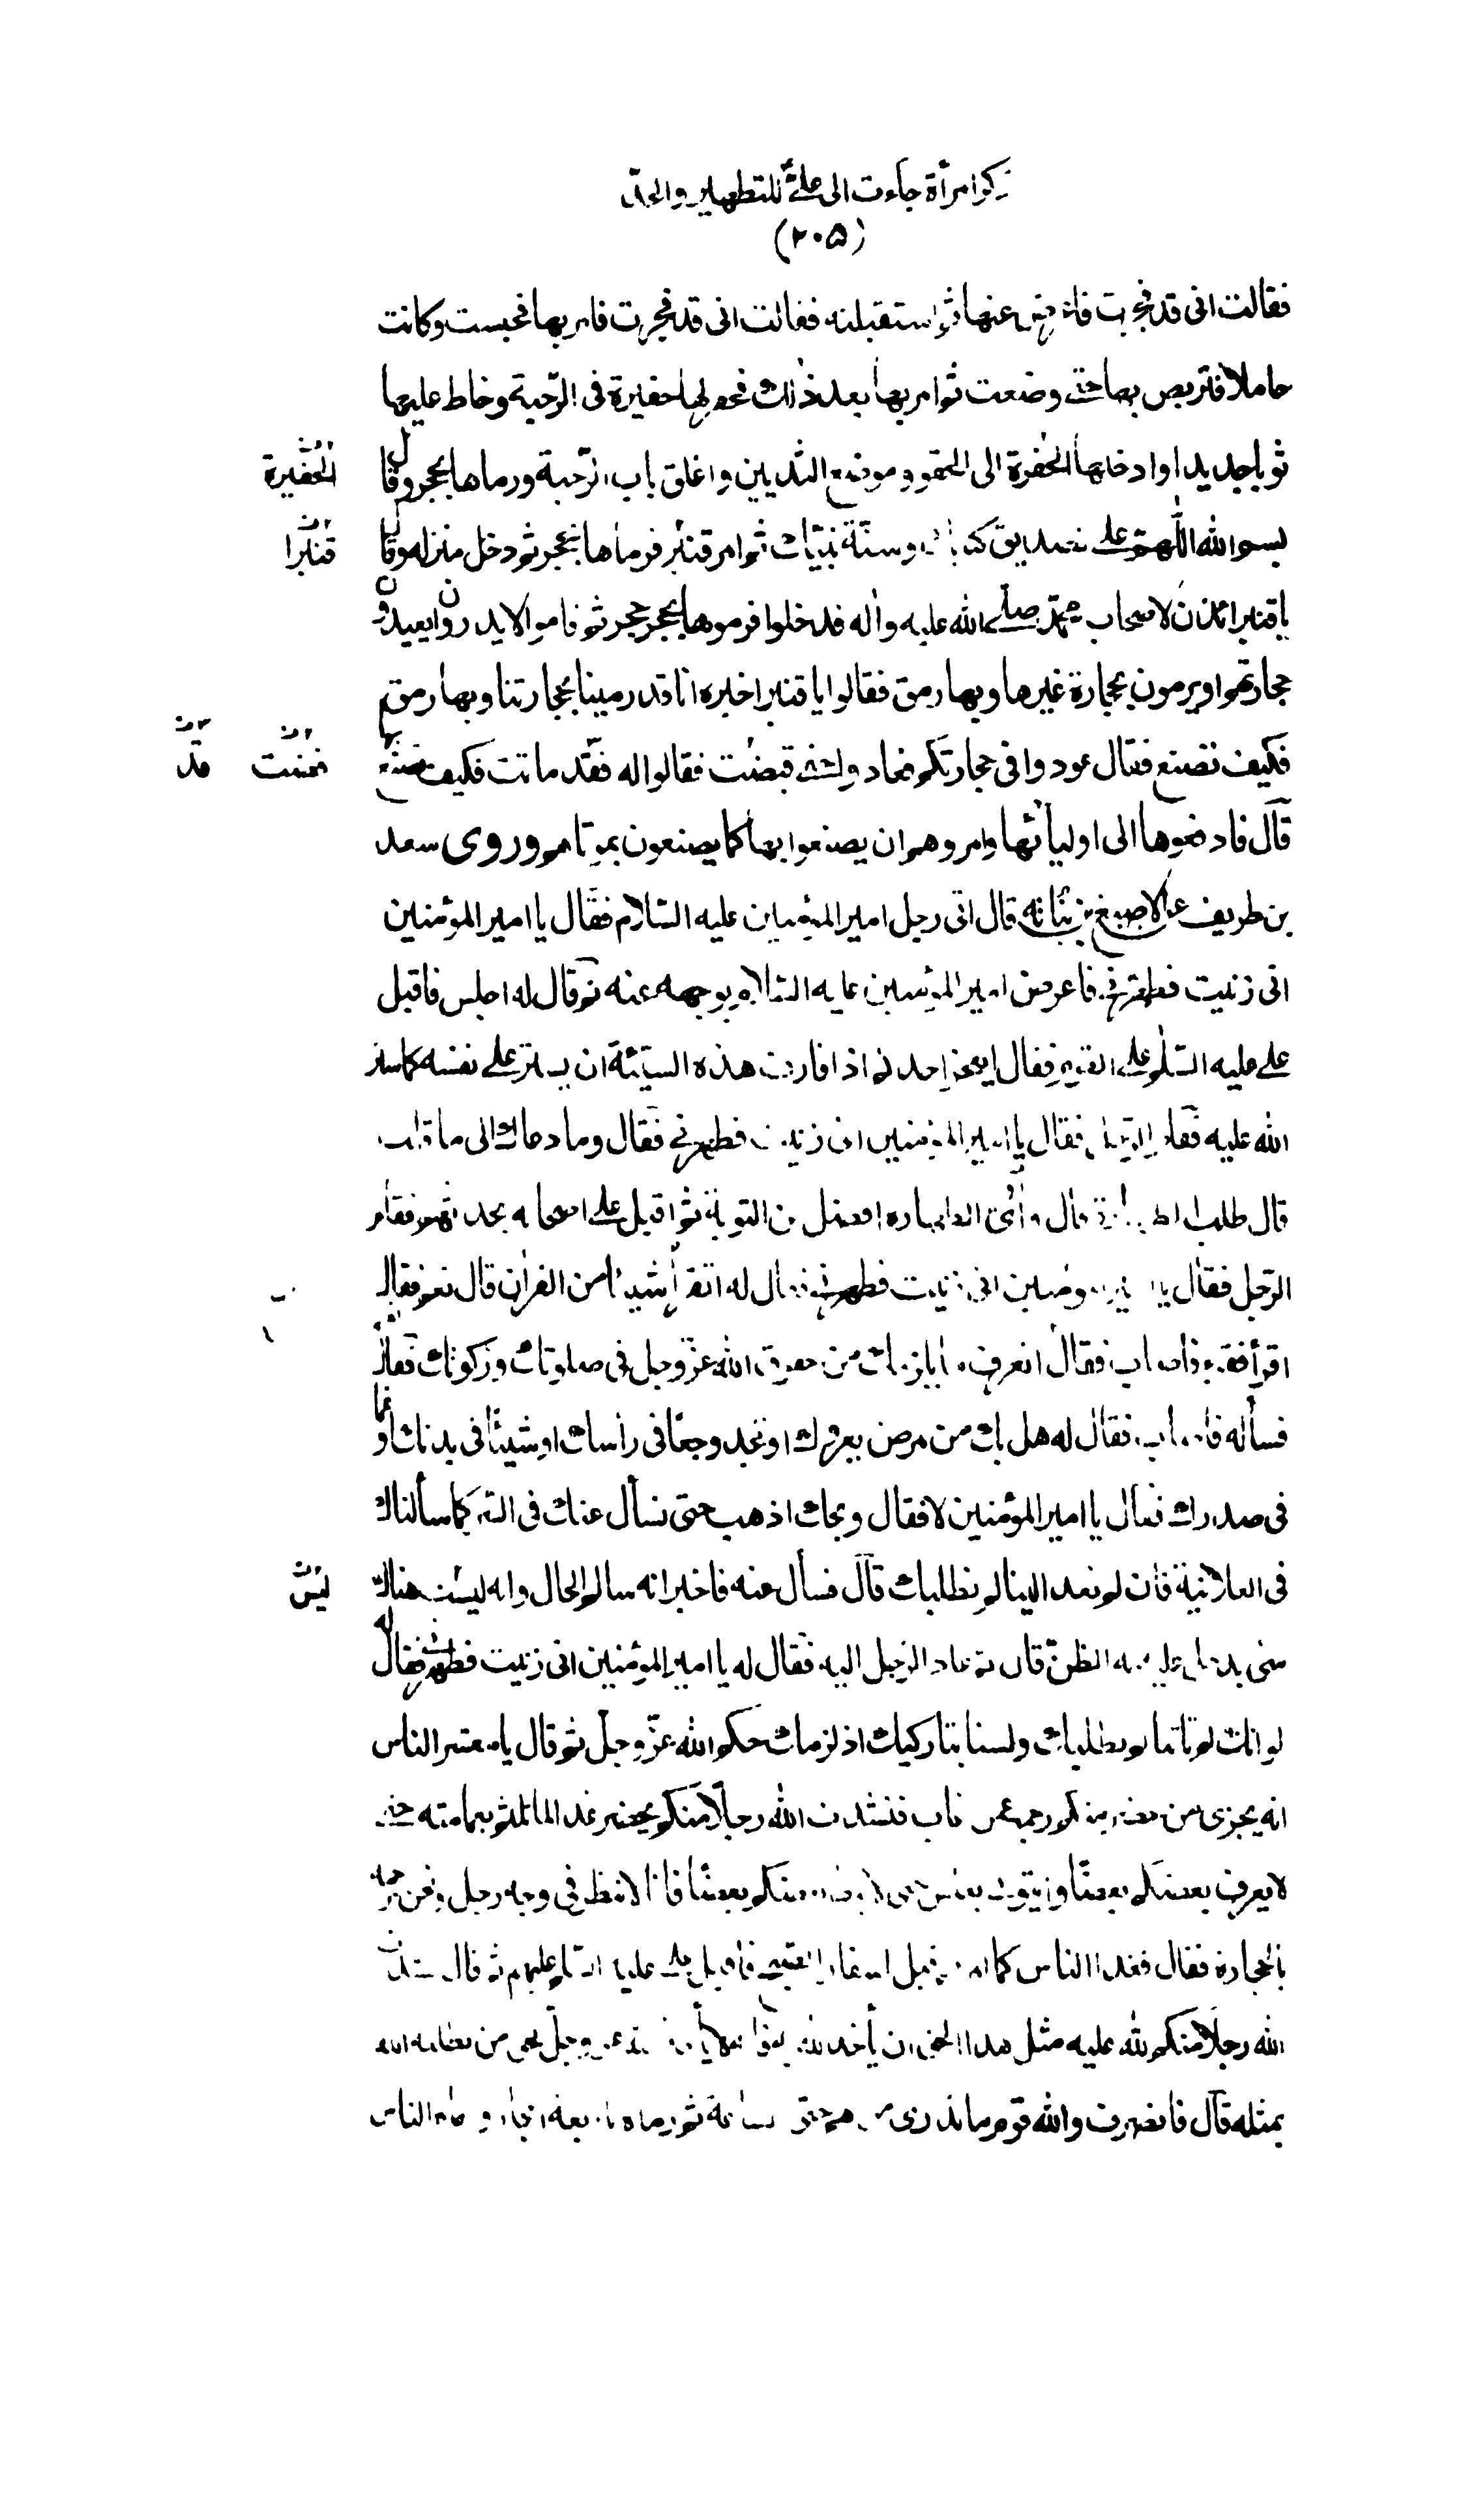 ذكر امرأة جاءت الى علي للتطهير والحد
(٢٠٥)
فقالت انى قد فجرت فاعرض عنها ثم استقبلته فقالت انى قد فجرت فامر بها فحبست وكانت
حاملا فتربص بها حتى وضعت ثم امر بها بعد ذلك فحفر لها حفيرة فى الرّحبة وخاط عليها
ثوبا جديدا وادخلها الحفرة الى الحقو وموضع الثديين واغلق باب الرّحبة ورماها بحجر وقال
الحفيرة
بسم الله اللّهم على تصديق كتابك وسنّة نبيّك ثم امر قنبر فرماها بحجر ثم دخل منزله وقال
قنبرا
يا قنبر ائذن لاصحاب محمّد صلى الله عليه وآله فدخلوا فرموها بحجر حجر ثم قاموا لا يدرون ايعيدون
حجارتهم او يرمون بحجارة غيرها وبها رمق فقالوا يا قنبر اخبره انا قد رمينا بحجارتنا وبها رمق
فكيف نصنع فقال عودوا فى حجارتكم فعادوا حتى قبضت فقالوا له فقد ماتت فكيف نصنع بها
قضت قد
قال فادفعوها الى اوليائها وامروهم ان يصنعوا بها كما يصنعون بموتاهم وروى سعد
بن طريف عن الاصبغ بن نباته قال اتى رجل امير المؤمنين عليه السّلام فقال يا امير المؤمنين
انى زنيت فطهرنى فاعرض امير المؤمنين عليه السّلام بوجهه عنه ثم قال له اجلس فاقبل
على عليه السّلم على القوم فقال ايعجز احدكم اذا قارف هذه السيّئة ان يستر على نفسه كما ستر
الله عليه فقام الرّجل فقال يا امير المؤمنين انى زنيت فطهرنى فقال وما دعاك الى ما قلت
قال طلب الطهارة قال واىّ الطهارة افضل من التوبة ثم اقبل على اصحابه يحدثهم فقام
الرّجل فقال يا امير المؤمنين انى زنيت فطهرنى فقال له اتقرأ شيئا من القرآن قال نعم فقال
اقرأ فقرء فاصاب فقال اتعرف ما يلزمك من حقوق الله عزّ وجل فى صلوتك وزكوتك فقال نعم
فسأله فاصاب فقال له هل بك من مرض يعروك او تجد وجعا فى رأسك او شيئا فى بدنك او غما
فى صدرك فقال يا امير المؤمنين لا فقال ويحك اذهب حتى نسأل عنك فى السّر كما سألناك
فى العلانية فان لم تعد الينا لم نطلبك قال فسأل عنه فاخبر انه سالم الحال وانه ليست هناك
ليس
شىء يدخل عليه به الظنّ قال ثم عاد الرّجل اليه فقال له يا امير المؤمنين انى زنيت فطهرنى فقال له
لو انك لم تأتنا لم نطلبك ولسنا بتاركيك اذ لزمك حكم الله عزّ وجلّ ثم قال يا معشر الناس
انه يجزى من حضر منكم رجمه عمن غاب فنشدت الله رجلا منكم يحضر غدا لما تلثم بعمامته حتى
لا يعرف بعضكم بعضا وأتونى بغلس حتى لا يبصر بعضكم بعضا فانا لا ننظر فى وجه رجل ونحن نرجمه
بالحجارة فقال فغدا الناس كما امرهم قبل اسفار الصبح فاقبل على عليه السّلم عليهم ثم قال نشدت
الله رجلا منكم لله عليه مثل هذا الحق ان يأخذ لله به فانه لا يأخذ لله عز وجلّ بحق من يطلبه الله
بمثله قال فانصرف والله قوم ما ندرى من هم حتى الساعة ثم رماه باربعة احجار ورماه الناس